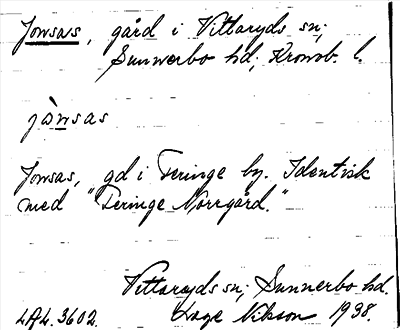 Jonsas, gård i Vittaryds sn;
Sunnerbo hd; Kronob. l.
jònsas
Jonsas, gd i Feringe by. Identisk
med "Feringe Norrgård."
Vittaryds sn; Sunnerbo hd.
LAL. 3602. Lage Nilsson 1938.